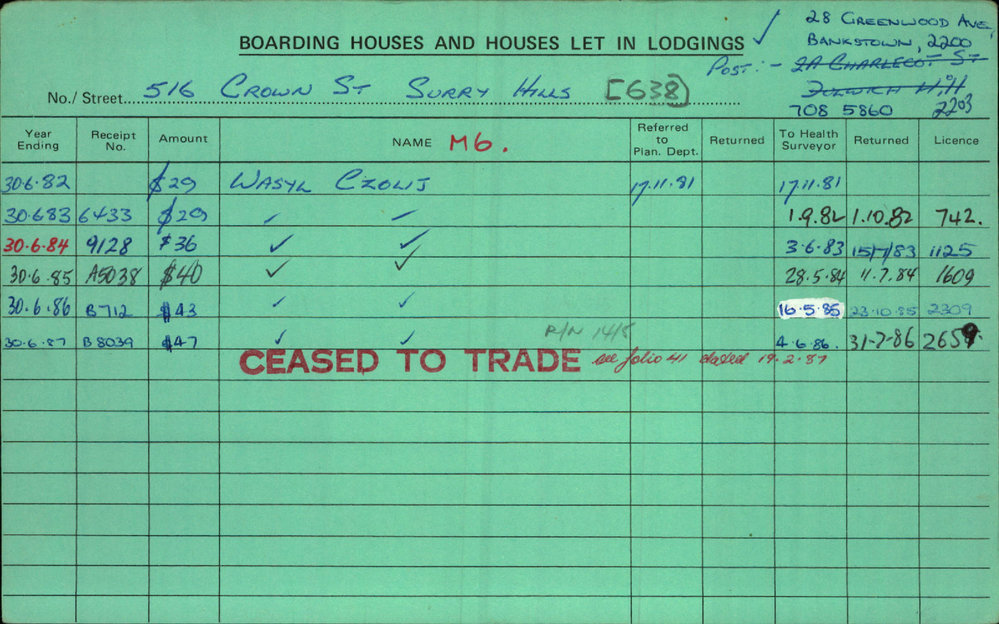 28 GREENWOOD AVE,
BANKSTOWN, 2200
BOARDING HOUSES AND HOUSES LET IN LODGINGS ✓
POST:- 2A CHARLECOT ST
DULWICH HILL
2203
708 5860
No./ Street 516 CROWN ST SURRY HILLS [638]
Year Ending Receipt No. Amount NAME M6. Referred to Plan. Dept. Returned To Health Surveyor Returned Licence
30.6.82 $29 WASYL CZOLIJ 17.11.81 17.11.81
30.6.83 6433 $29 ✓ ✓ 1.9.82 1.10.82 742.
30.6.84 9128 $36 ✓ ✓ 3.6.83 15/7/83 1125
30.6.85 A5038 $40 ✓ ✓ 28.5.84 11.7.84 1609
30.6.86 B712 $43 ✓ ✓ 16.5.85 23.10.85 2309
30.6.87 B8039 $47 ✓ ✓ R/N 1415 4.6.86. 31-7-86 2659
CEASED TO TRADE see folio 41 dated 19.2.87